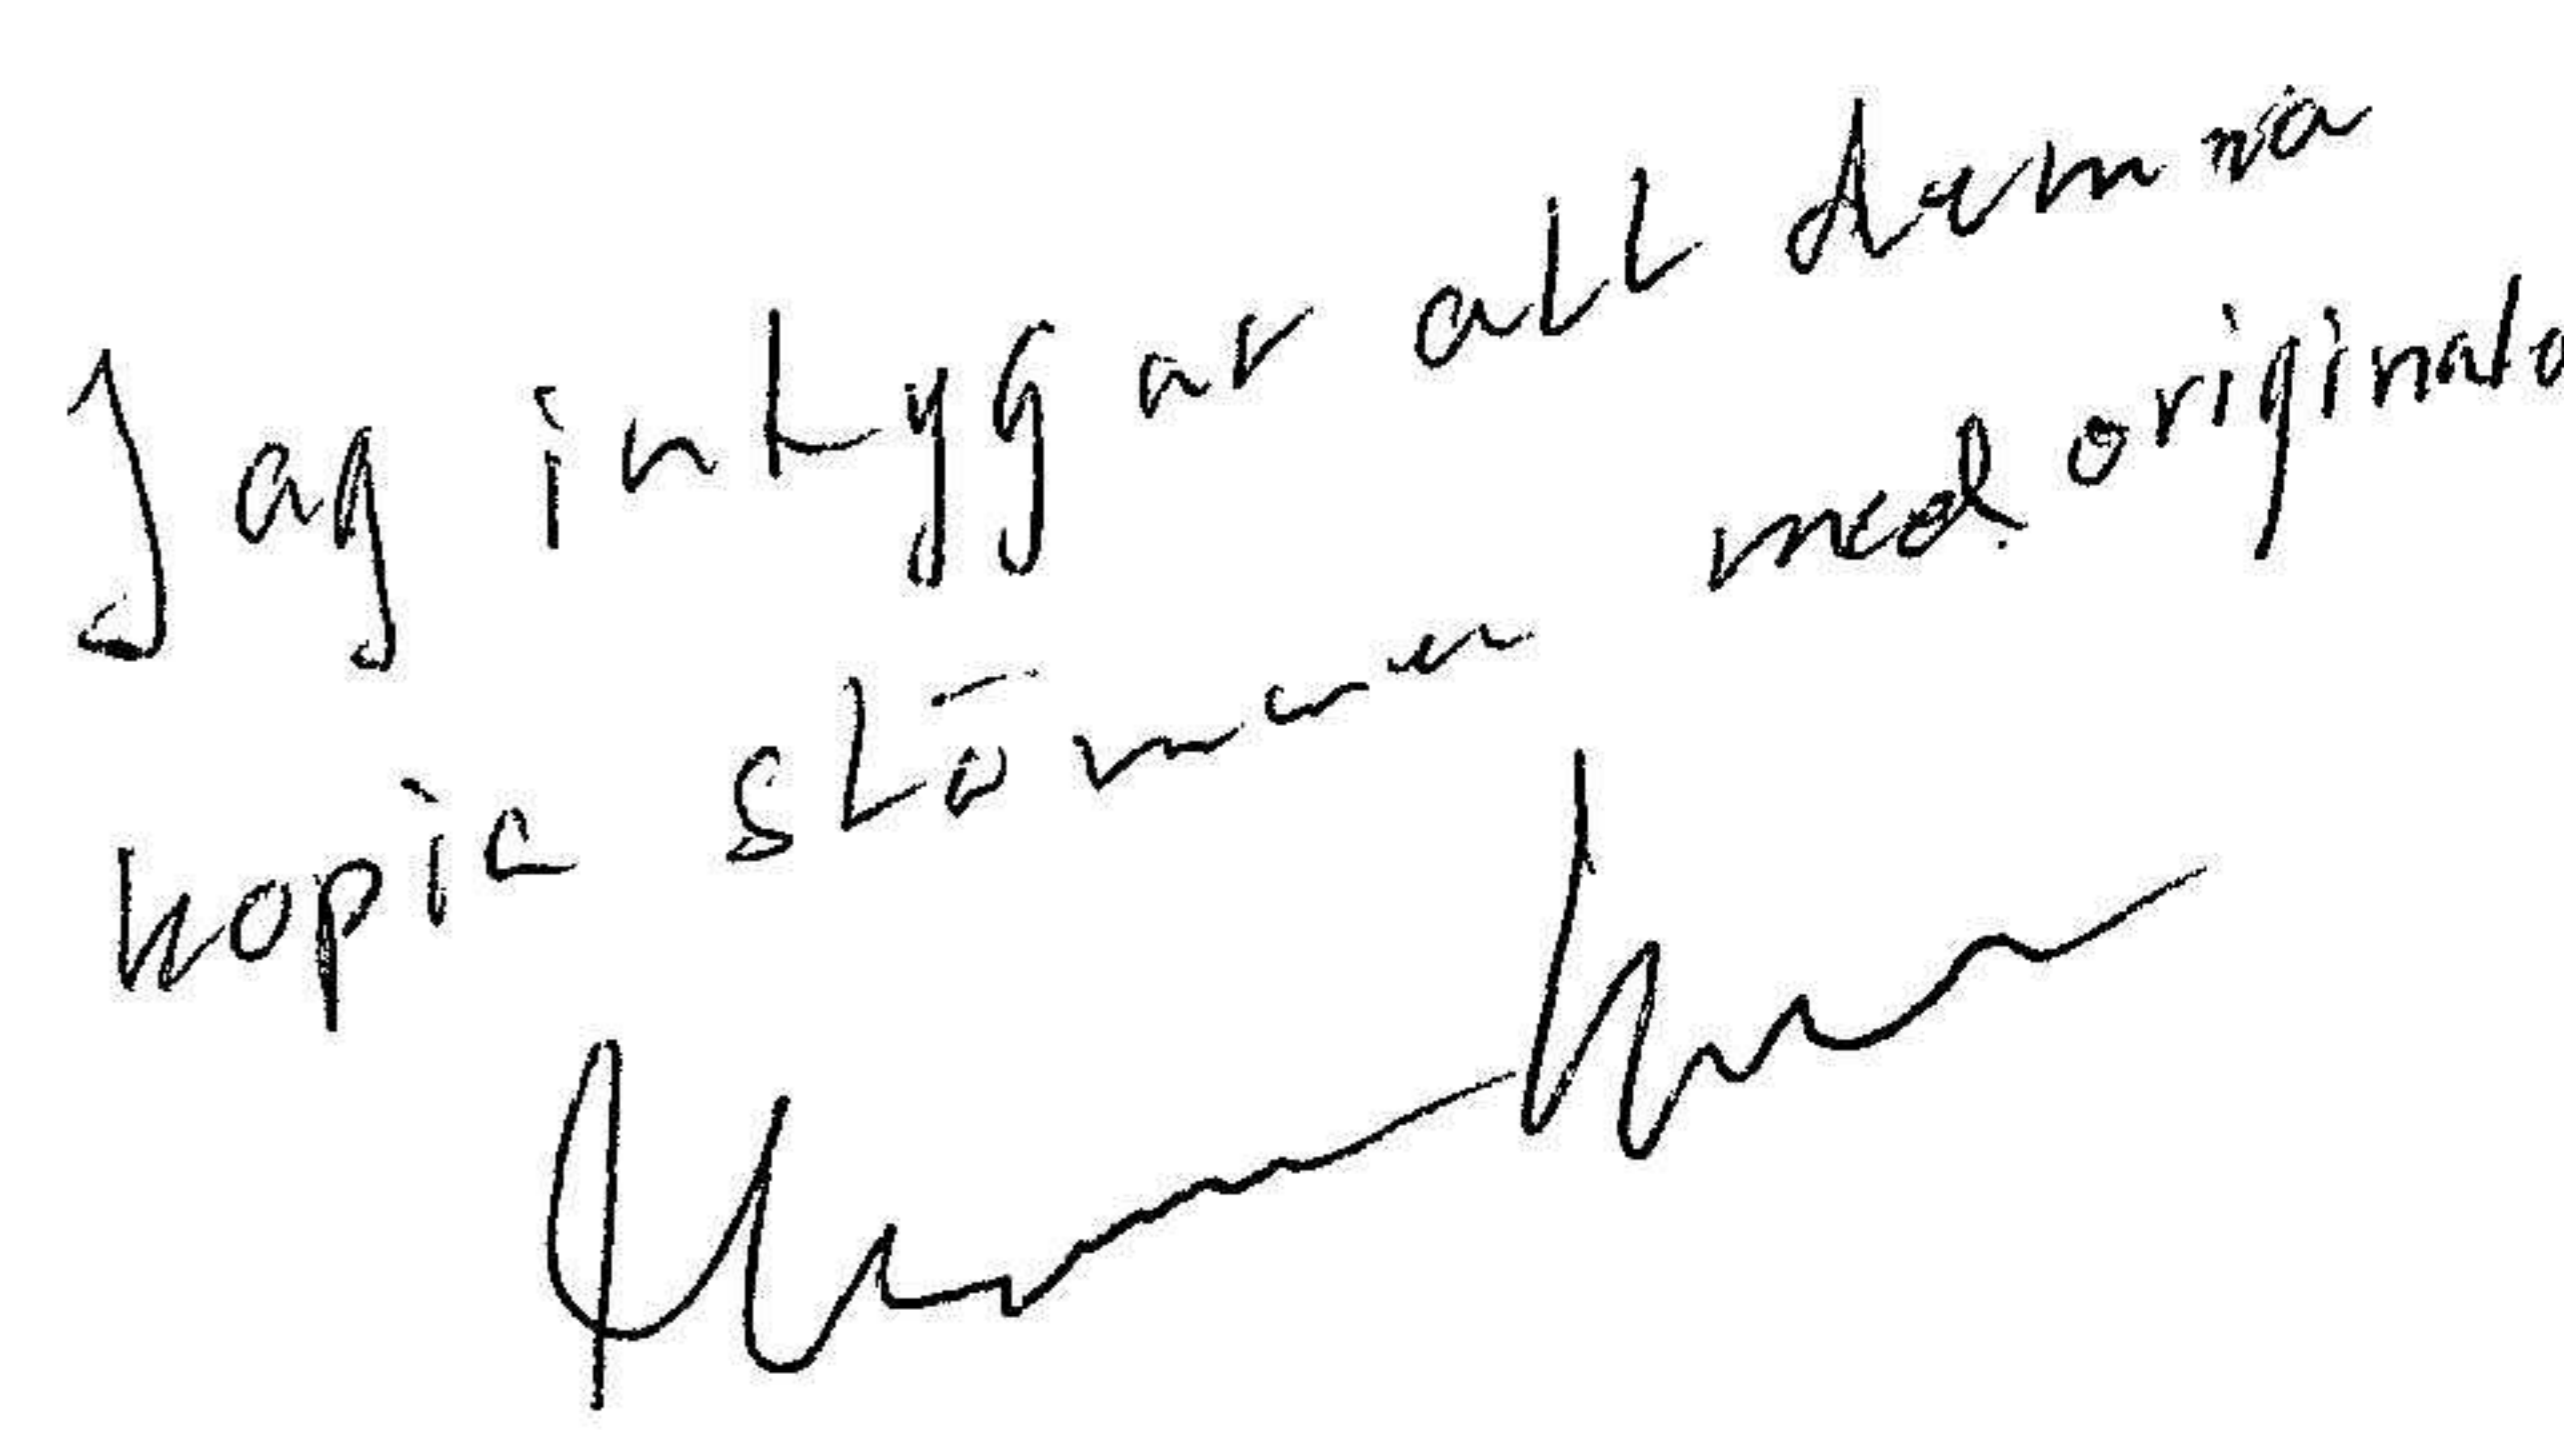 Jag intygar att denna
kopia stämmer med originala